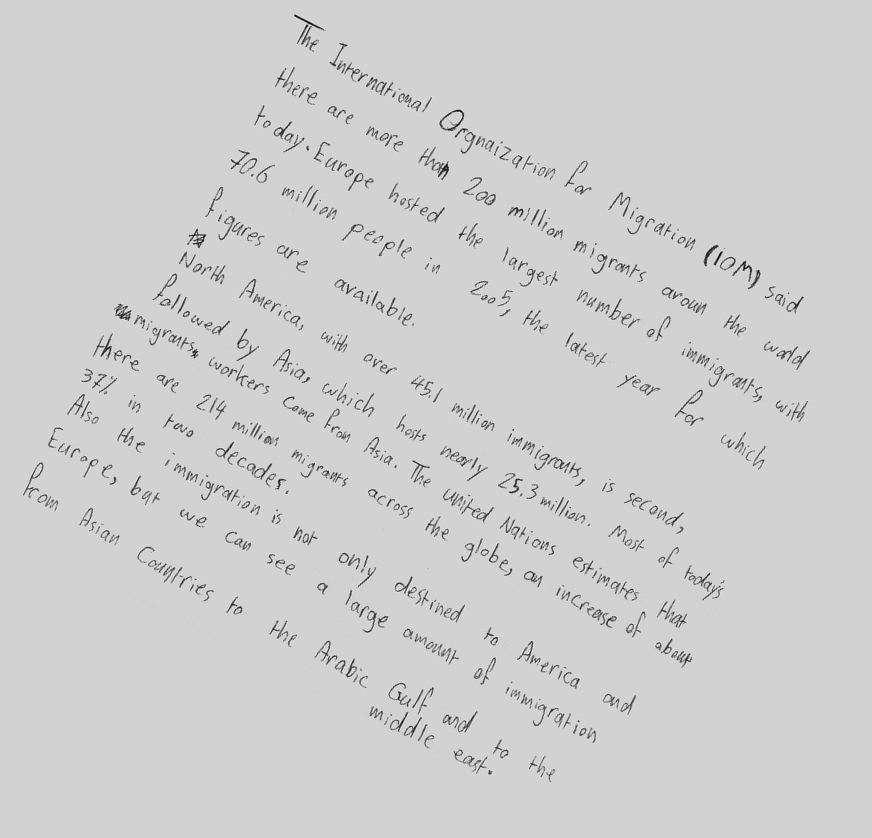 The International Orgnaization for Migration (IOM) said
there are more than 200 million migrants aroun the world
today. Europe hosted the largest number of immigrants, with
70.6 million people in 2005, the latest year for which
figures are available.
North America, with over 45.1 million immigrants, is second,
followed by Asia, which hosts nearly 25.3 million. Most of today's
migrants workers come from Asia. The United Nations estimates that
there are 214 million migrants across the globe, an increase of about
37% in two decades.
Also the immigration is not only destined to America and
Europe, but we can see a large amount of immigration
from Asian Countries to the Arabic Gulf and to the
middle east.